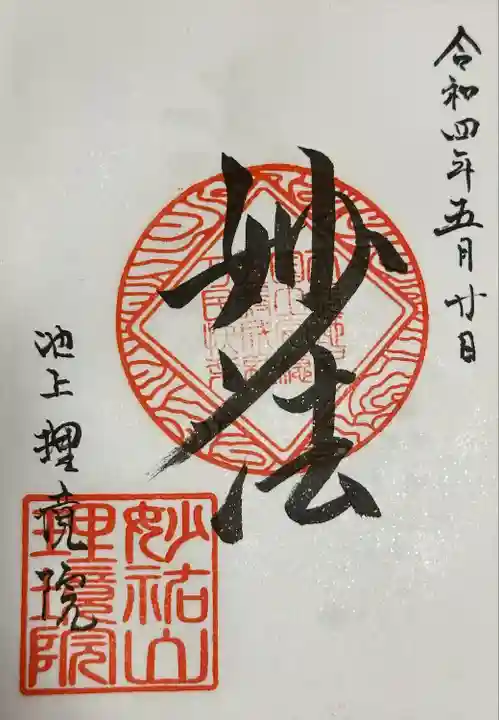 令和四年五月廿日
妙法
池上理境院
妙祐山
理境院